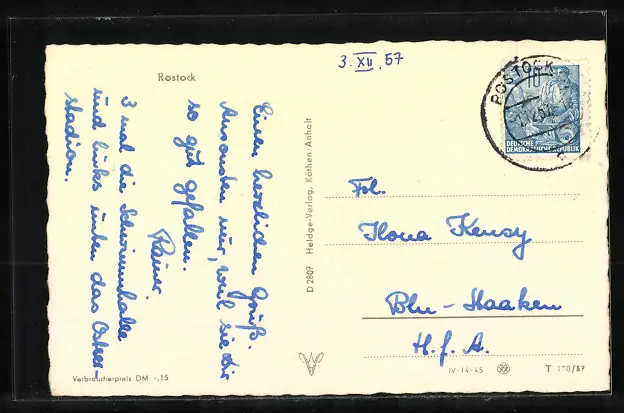 3. XII. 57
Rostock
Einen herzlichen Gruß.
Ansonsten nur, weil sie dir
so gut gefallen.
Rainer.
3 mal die Schwimmhalle
und links unten das Ostsee-
stadion.
Verbraucherpreis DM -.15
D 2807 Heldge-Verlag, Köthen/Anhalt
ROSTOCK
10
5
DEUTSCHE
DEMOKRATISCHE REPUBLIK
Frl.
Ilona Kensy
Bln - Staaken
H. f. A.
IV-14-45